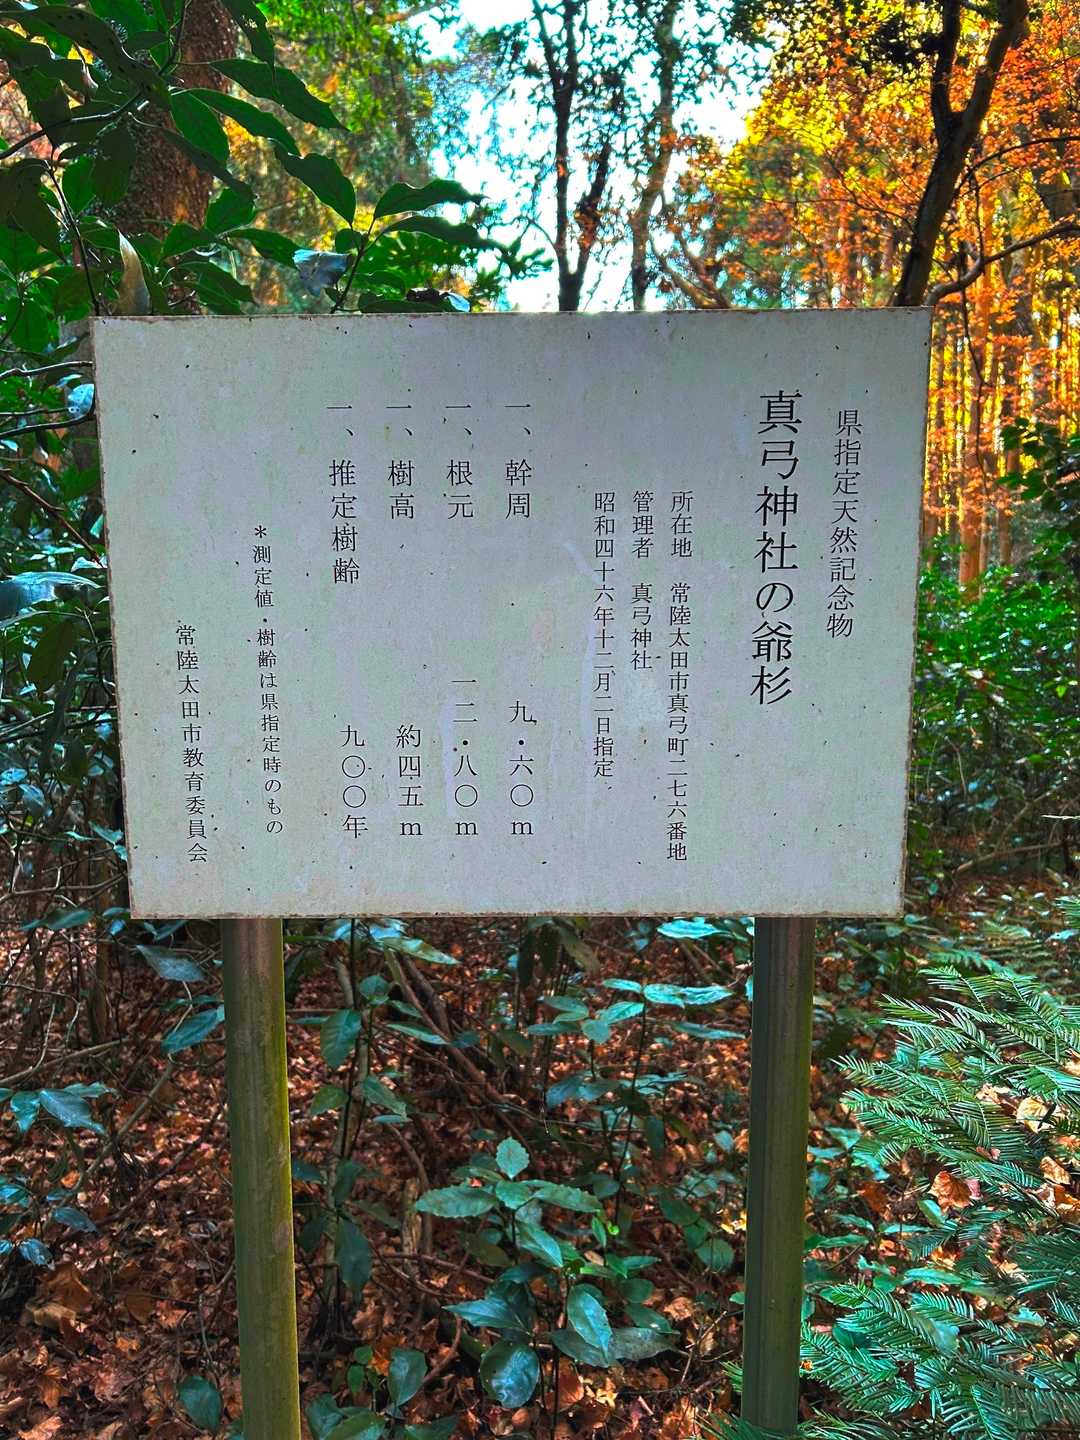 県指定天然記念物
真弓神社の爺杉
所在地　常陸太田市真弓町二七六番地
管理者　真弓神社
昭和四十六年十二月二日指定
一、幹周　九・六〇ｍ
一、根元　一二・八〇ｍ
一、樹高　約四五ｍ
一、推定樹齢　九〇〇年
＊測定値・樹齢は県指定時のもの
常陸太田市教育委員会